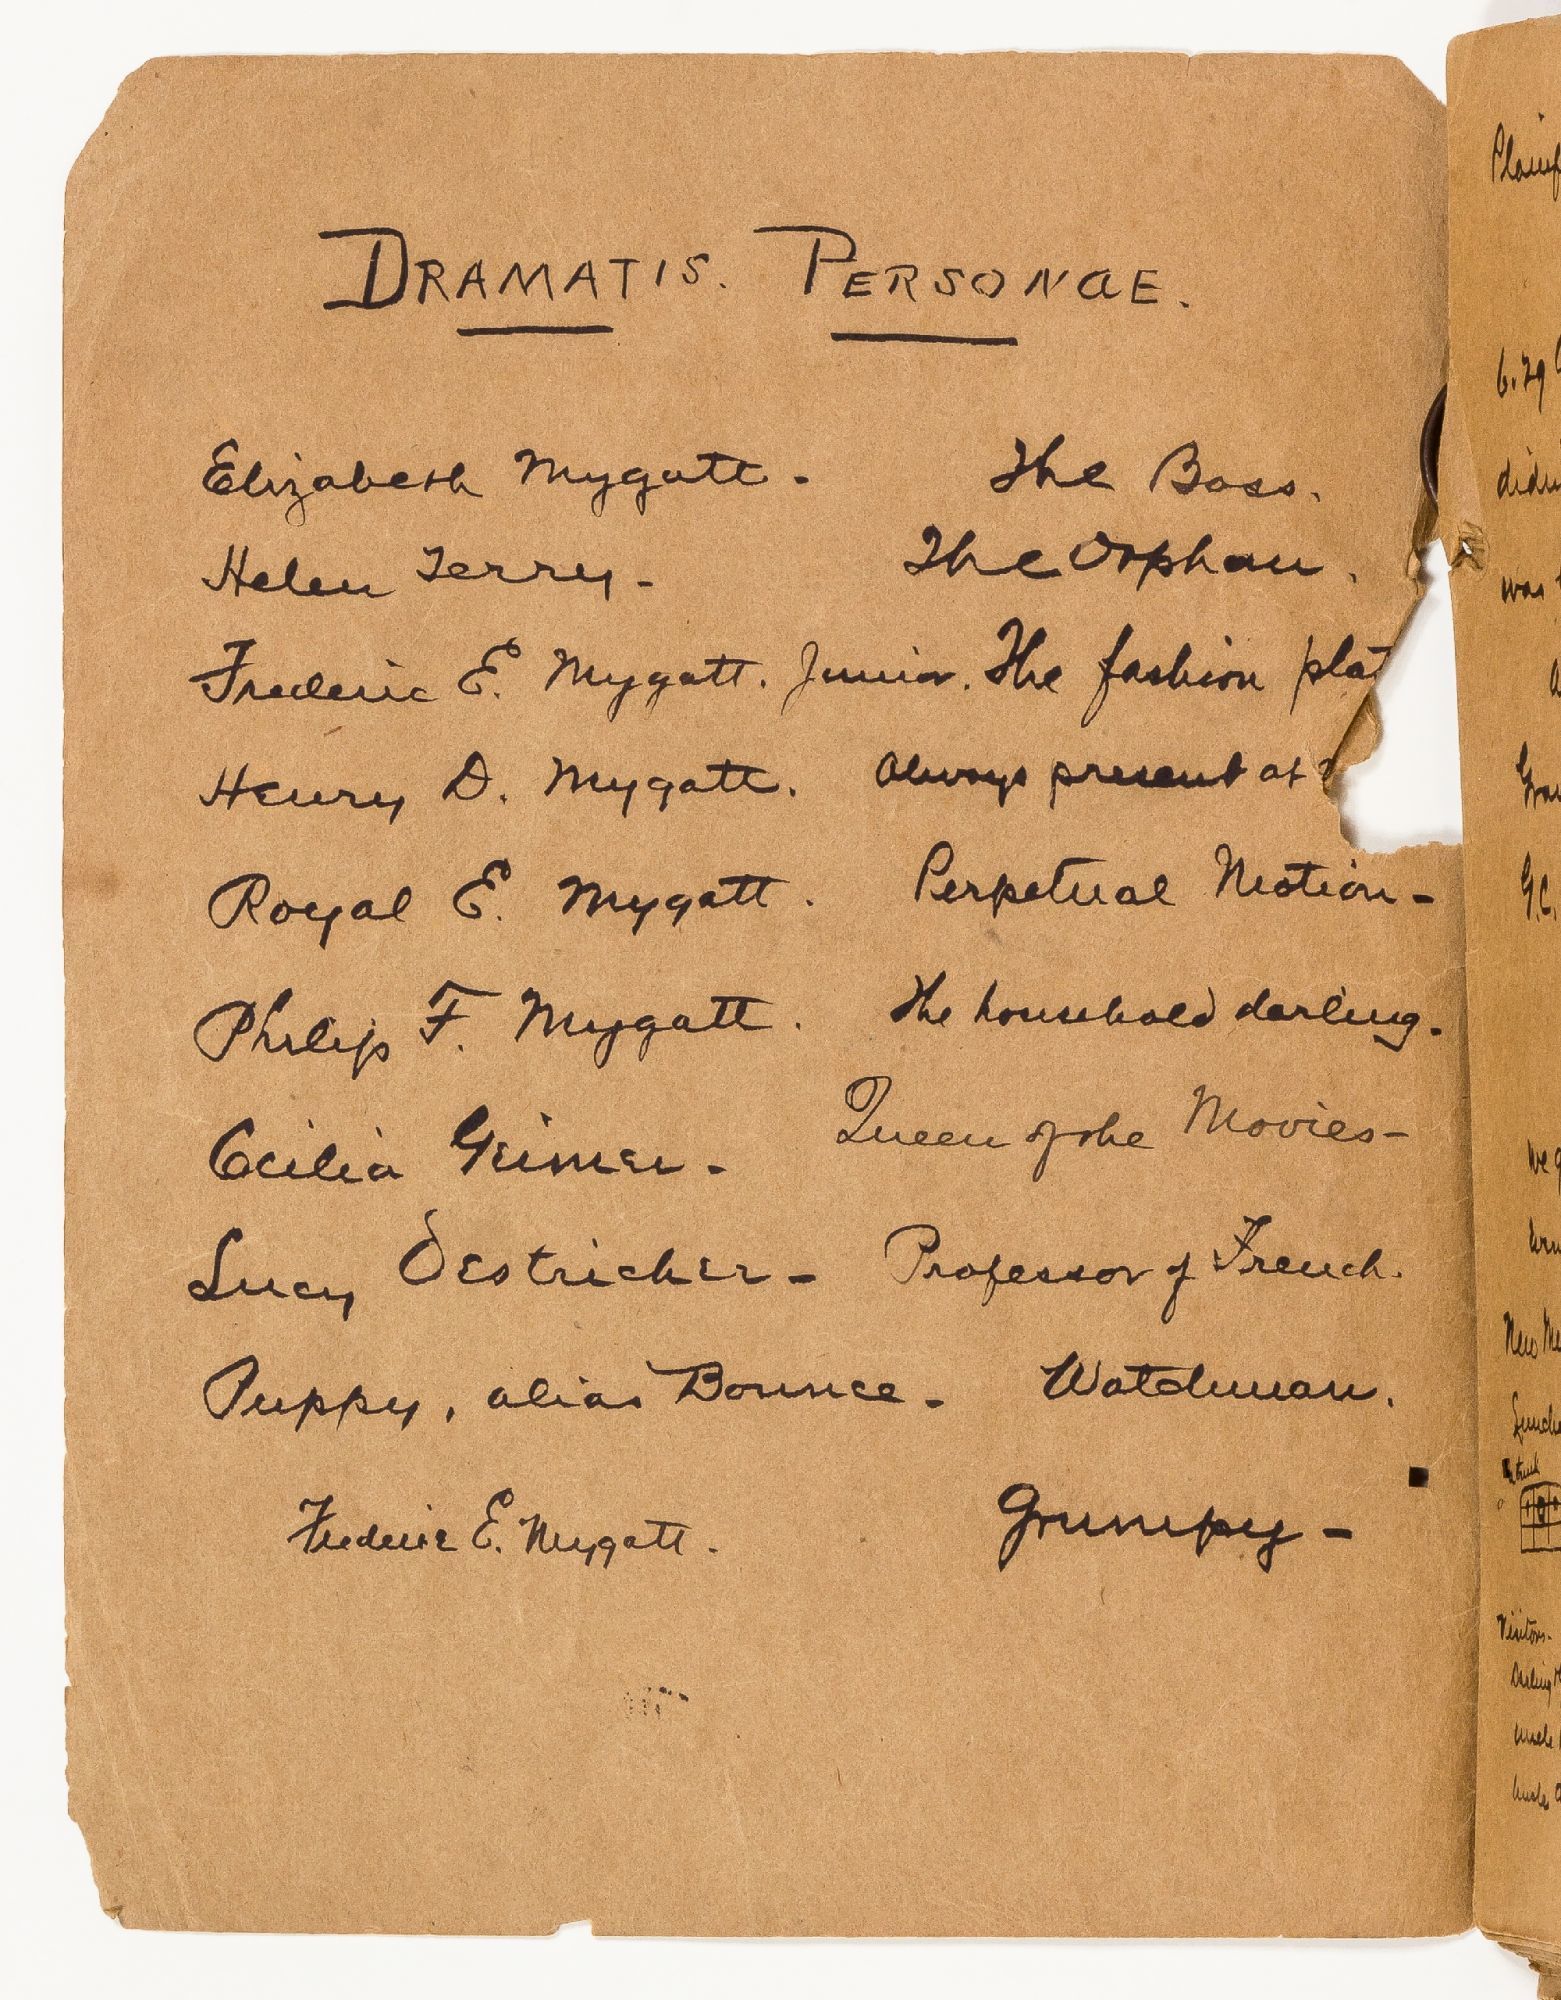 DRAMATIS. PERSONAE.
Elizabeth Mygatt - The Boss.
Helen Terry - The Orphan.
Frederic E. Mygatt. Junior. The fashion plat
Henry D. Mygatt. Always present at
Royal E. Mygatt. Perpetual Motion -
Philip F. Mygatt. The household darling.
Cecilia Geimer - Queen of the Movies -
Lucy Oestricher - Professor of French.
Puppy, alias Bounce - Watchman.
Frederic E. Mygatt. Grumpy -
Plainf
6.29
didn
was
G.C.
we g
New Me
Lunch
Visitors -
Darling
Uncle